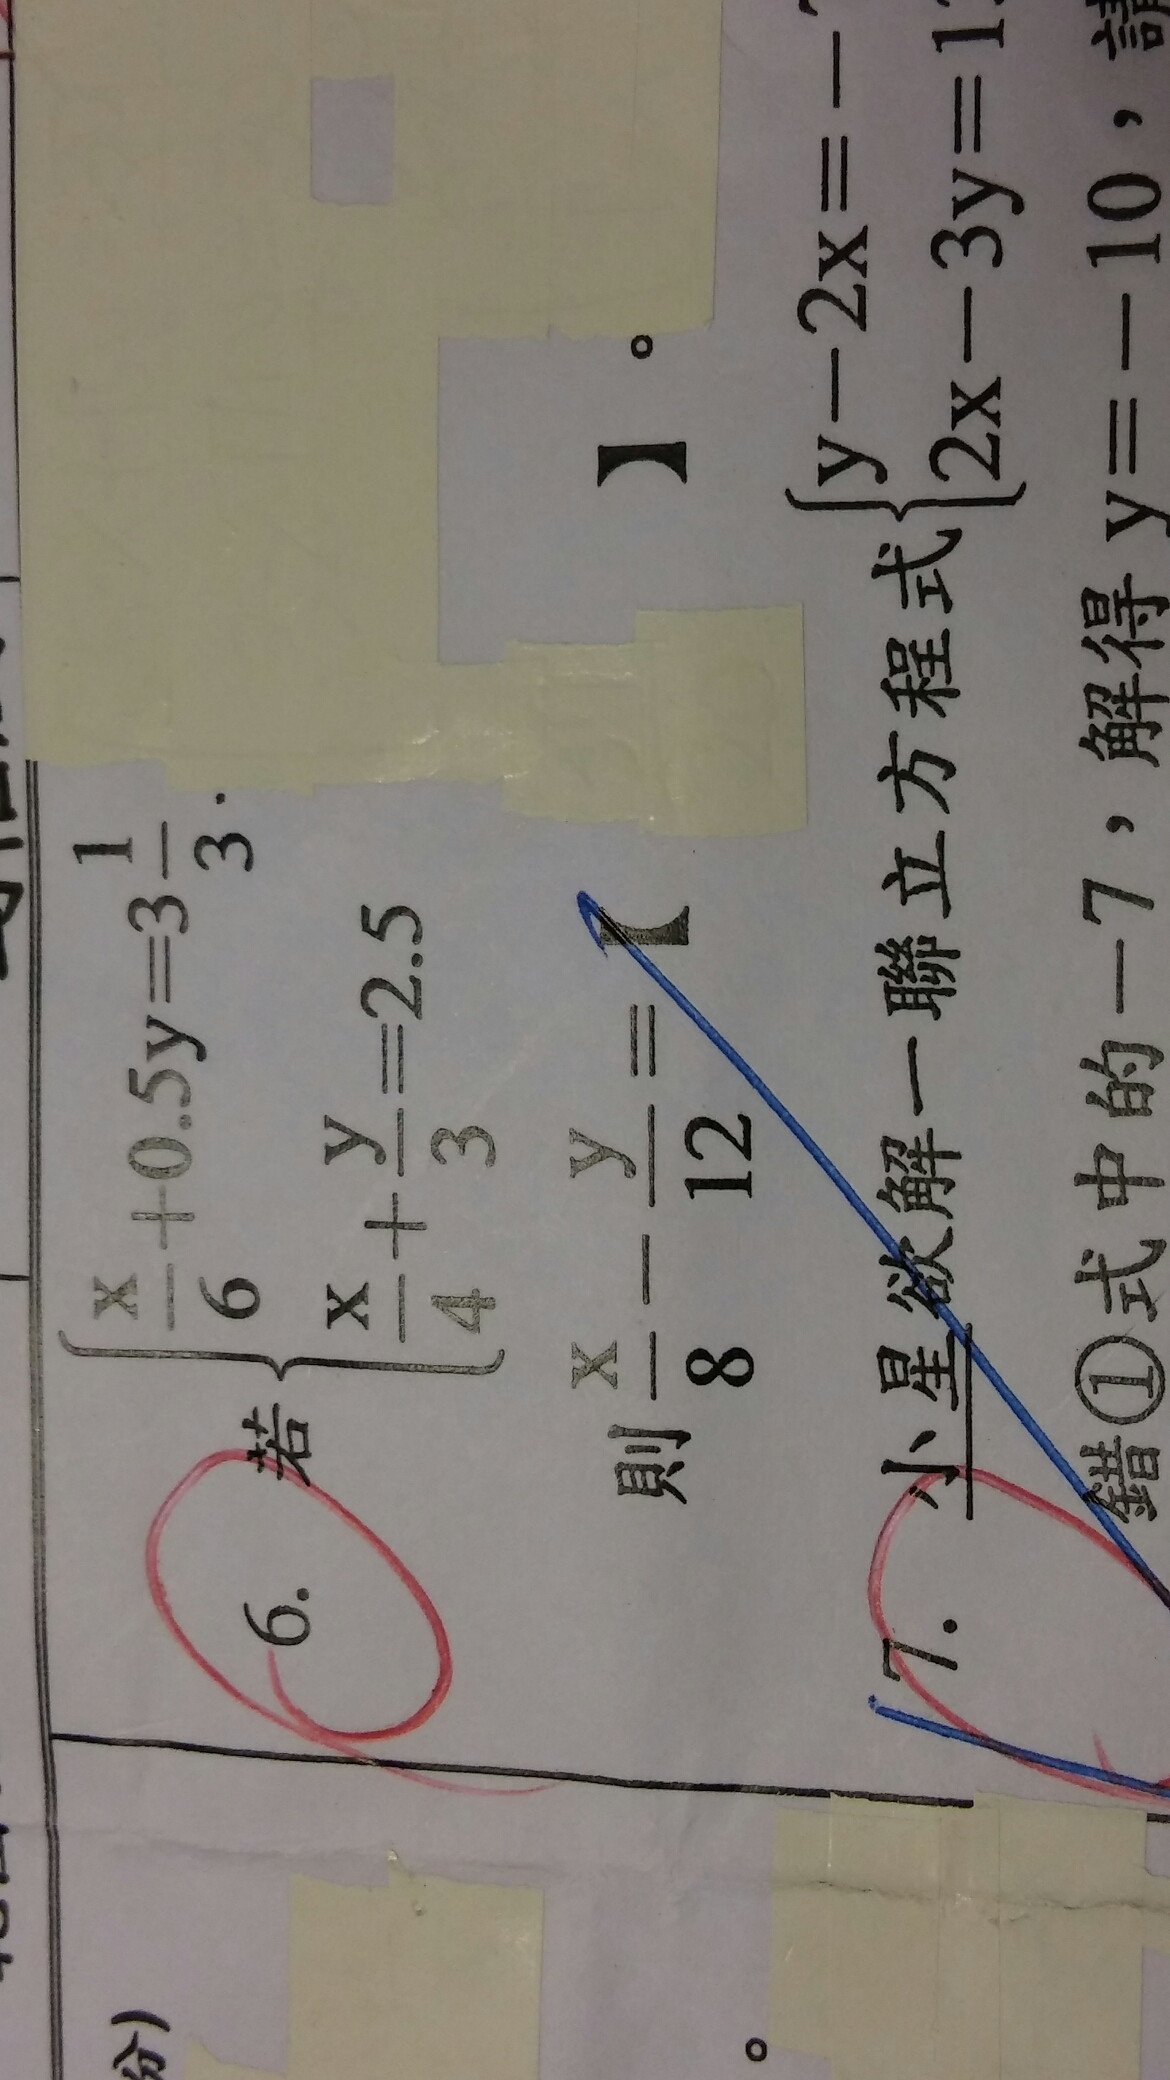 6. 若 { x/6 + 0.5y = 3 1/3
x/4 + y/3 = 2.5
則 x/8 − y/12 = 【 】。
7. 小星欲解一聯立方程式 { y−2x=−
2x−3y=1
錯①式中的−7，解得 y=−10，
份)
。